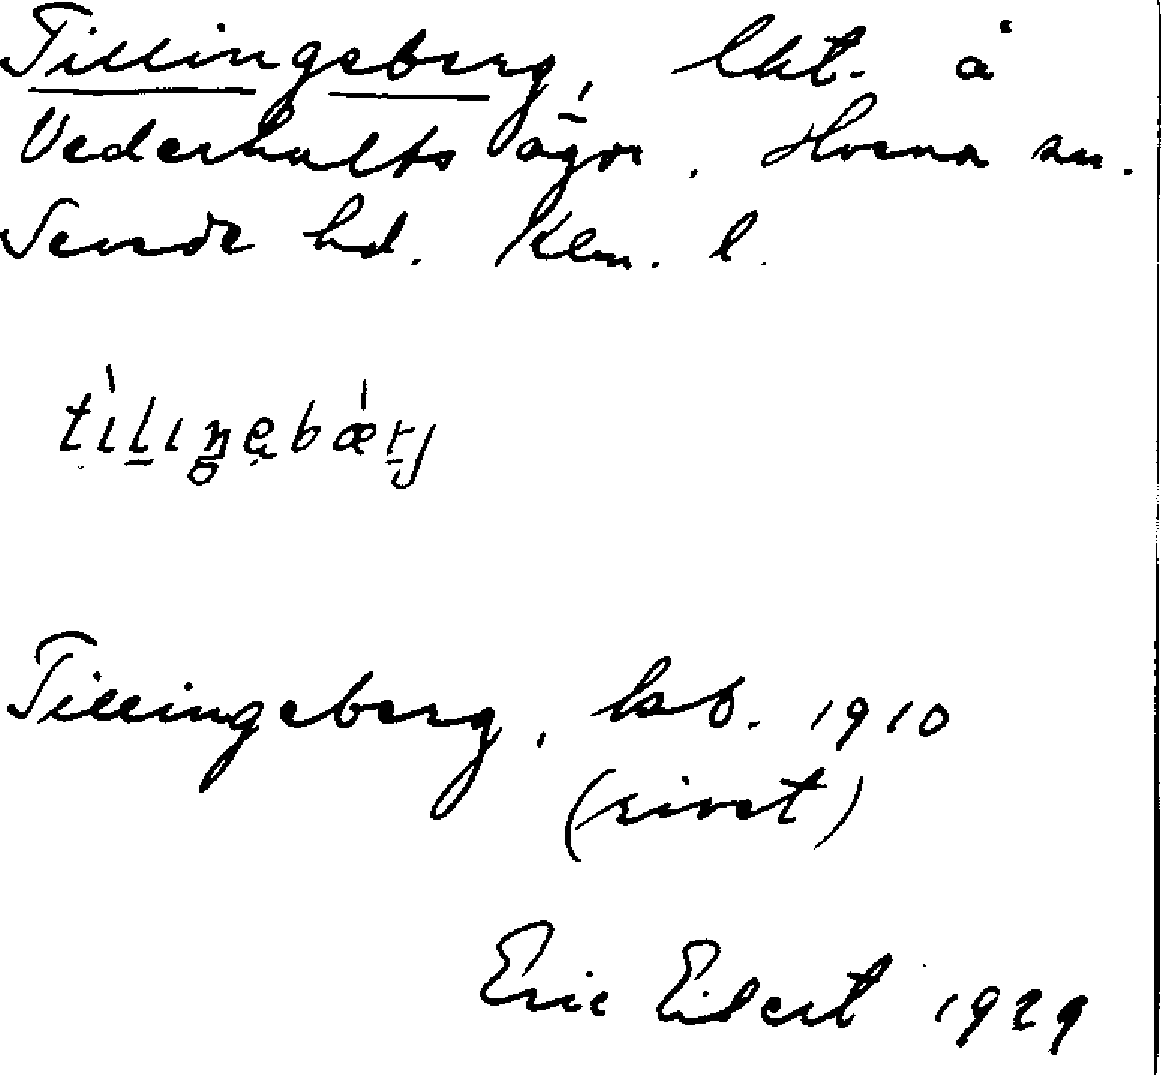 Tillingeberg, lht. å
Vederhults ägor, Hvena sn.
Sevede hd. Klm. l.
tı̀lıŋebæ̀rj
Tillingeberg, 1910
(rivet)
Eric Eilert 1929